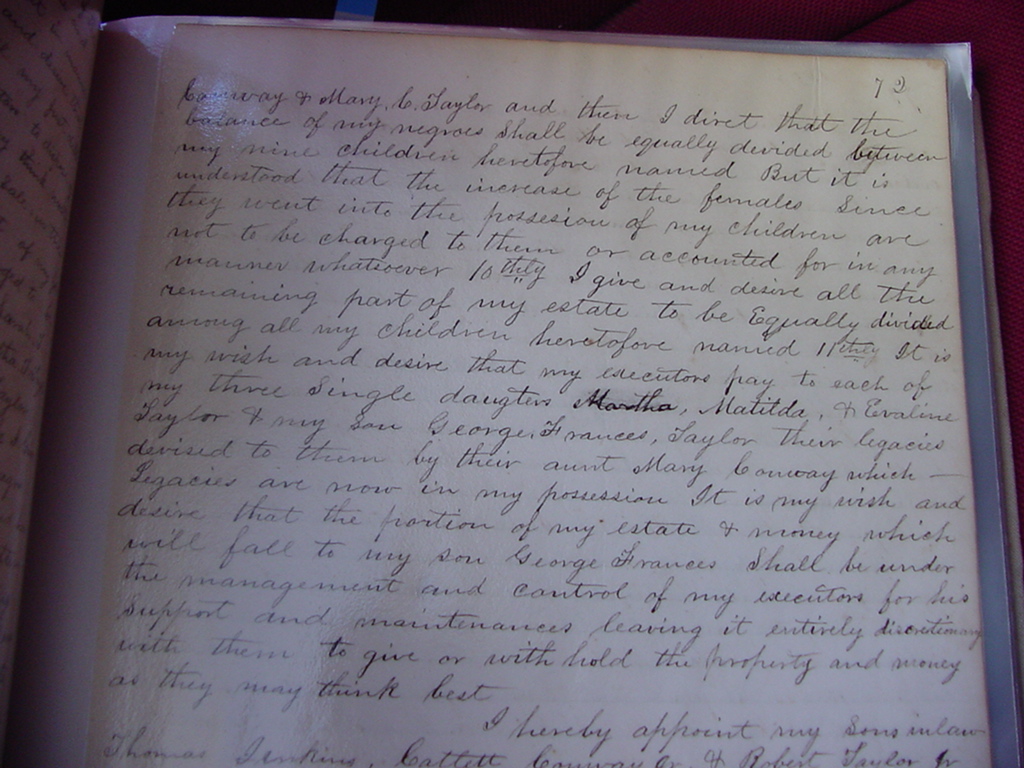 72
Conway & Mary C Taylor and then I diret that the
balance of my negroes shall be equally divided between
my nine children heretofore named But it is
understood that the increase of the females since
they went into the possession of my children are
not to be charged to them or accounted for in any
manner whatsoever 10thly I give and desire all the
remaining part of my estate to be Equally divided
among all my children heretofore named 11thly It is
my wish and desire that my executors pay to each of
my three Single daugters Martha, Matilda, & Evaline
Taylor & my Son George Frances, Taylor their legacies
devised to them by their aunt Mary Conway which -
Legacies are now in my posession It is my wish and
desire that the portion of my estate & money which
will fall to my son George Frances Shall be under
the management and control of my executors for his
support and maintenances leaving it entirely
with them to give or with hold the property and money
as they may think best
I hereby appoint my Sons in law
Thomas Jenkins, Catlett Conway Jr & Robert Taylor Jr